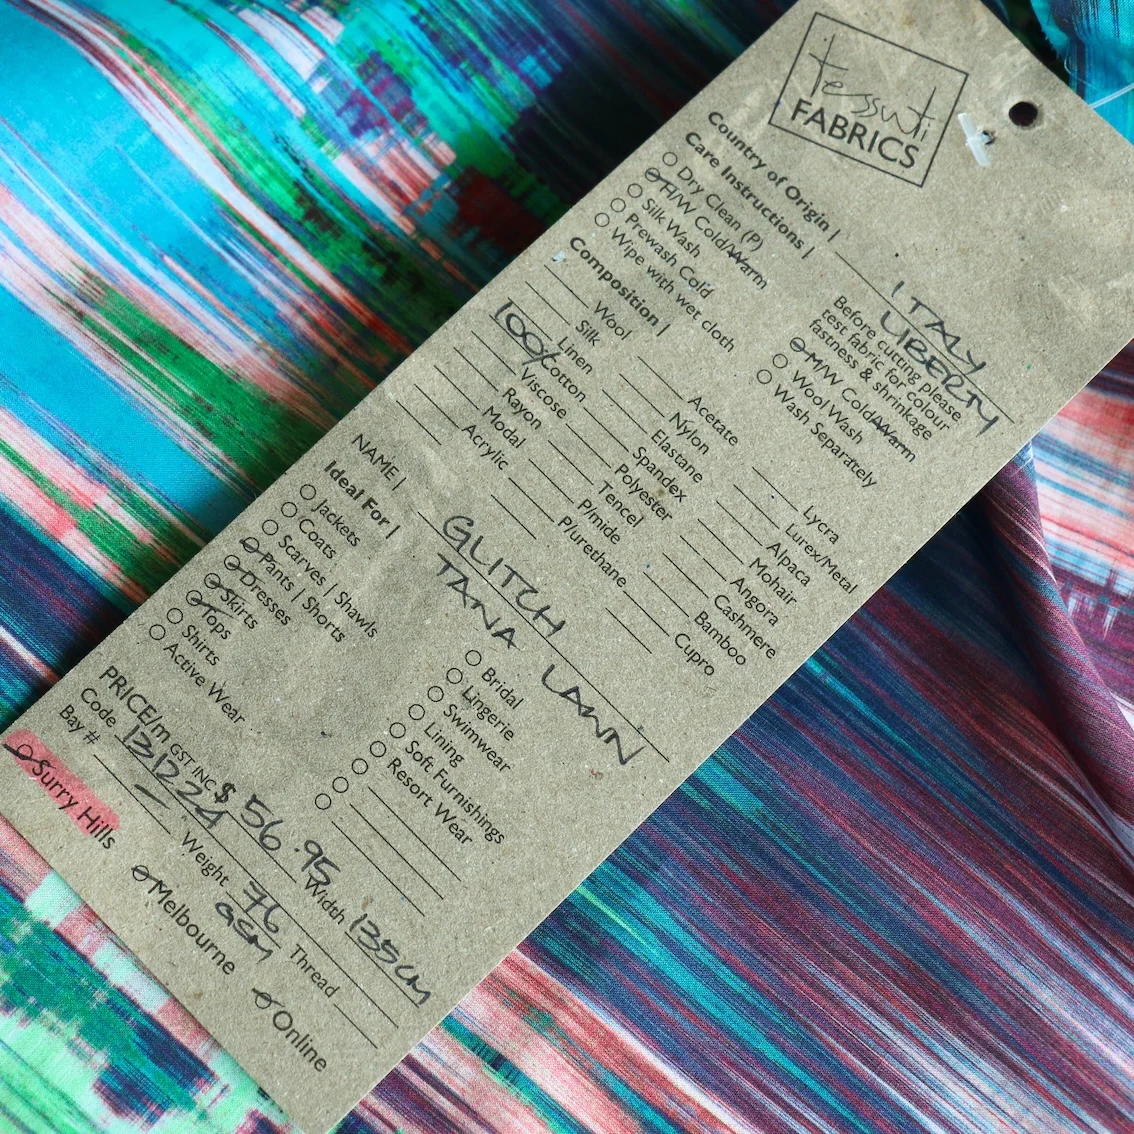 tessuti
FABRICS
Country of Origin | ITALY
LIBERTY
Care Instructions |
Dry Clean (P)
H/W Cold/Warm
Silk Wash
Prewash Cold
Wipe with wet cloth
Before cutting please
test fabric for colour
fastness & shrinkage
M/W Cold/Warm
Wool Wash
Wash Separately
Composition |
Wool
Silk
Linen
100% Cotton
Viscose
Rayon
Modal
Acrylic
Acetate
Nylon
Elastane
Spandex
Polyester
Tencel
P/mide
P/urethane
Lycra
Lurex/Metal
Alpaca
Mohair
Angora
Cashmere
Bamboo
Cupro
NAME | GLITCH
TANA LAWN
Ideal For |
Jackets
Coats
Scarves | Shawls
Pants | Shorts
Dresses
Skirts
Tops
Shirts
Active Wear
Bridal
Lingerie
Swimwear
Lining
Soft Furnishings
Resort Wear
PRICE/m GST INC $ 56.95
Code 131224 Width 135CM
Bay # — Weight 76 GSM Thread
Surry Hills Melbourne Online